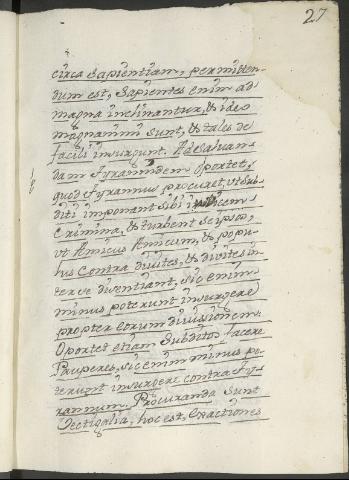 27
circa sapientiam, permitten-
dum est, Sapientes enim ad
magna inclinantur, & ideo
magnanimi sunt, & tales de
facili insurgunt. Ad salvan-
dam Tyrannidem oportet,
quod Tyrannus procuret, ut sub-
diti imponant sibi invicem
Crimina, & turbent se ipsos,
ut Amicus Amicum, & popu-
lus contra divites, & divites in-
ter se dissentiant, sic enim
minus poterunt insurgere
propter eorum divisionem.
Oportet etiam subditos facere
Pauperes, sic enim minus po-
terunt insurgere contra Ty-
rannum. Procuranda sunt
Vectigalia, hoc est, exactiones